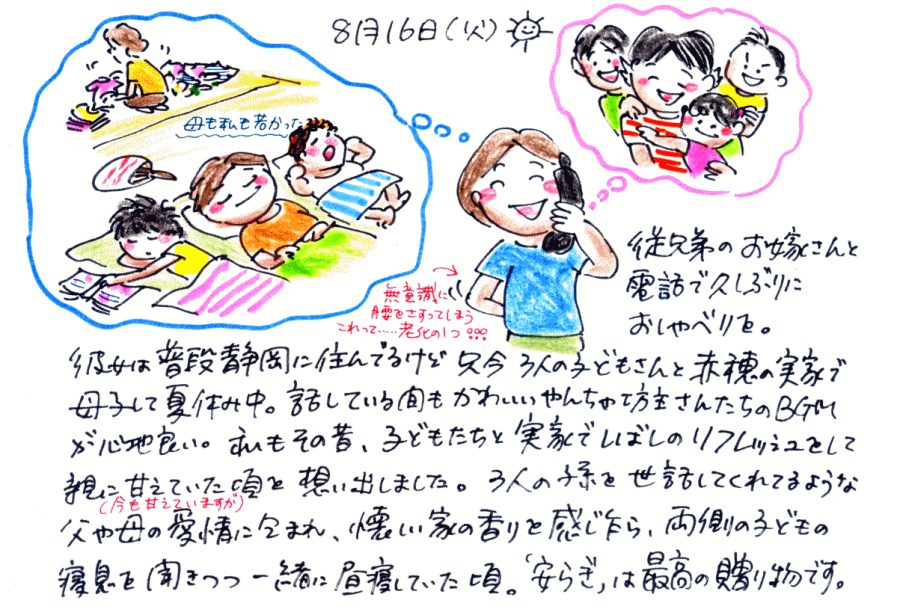 8月16日(火)
母も私も若かった
従兄弟のお嫁さんと
電話で久しぶりに
おしゃべりを。
無意識に
腰をさすってしまう
これって……老化の1つ
彼女は普段静岡に住んでるけど只今3人の子どもさんと赤穂の実家で
母子して夏休み中。話している間もかわいいやんちゃ坊主さんたちのBGM
が心地良い。私もその昔、子どもたちと実家でしばしのリフレッシュをして
親に甘えていた頃を想い出しました。3人の子孫を世話してくれてるような
(今も甘えていますが)
父や母の愛情に包まれ、懐しい家の香りを感じ乍ら、両側の子どもの
寝息を聞きつつ一緒に昼寝していた頃。「安らぎ」は最高の贈り物です。